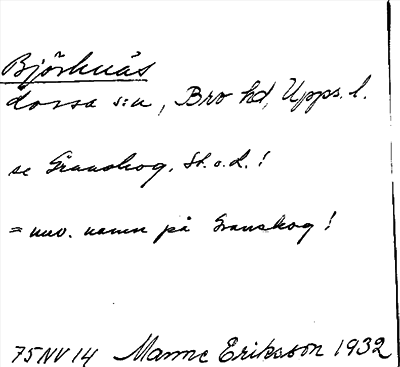 Björknäs
Lossa s:n, Bro hd, Upps. l.
se Granskog, St. o. d.!
= nuv. namn på Granskog!
75NV14 Manne Eriksson 1932